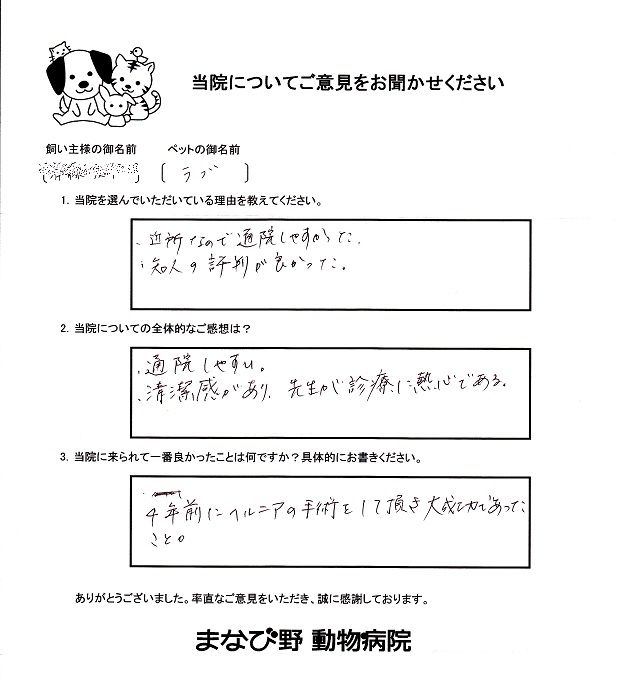 当院についてご意見をお聞かせください
飼い主様の御名前 ペットの御名前
[ ラブ ]
1. 当院を選んでいただいている理由を教えてください。
・近所なので通院しやすかった。
・知人の評判が良かった。
2. 当院についての全体的なご感想は?
・通院しやすい。
・清潔感があり、先生が診療に熱心である。
3. 当院に来られて一番良かったことは何ですか?具体的にお書きください。
4年前にヘルニアの手術をして頂き大成功であった
こと。
ありがとうございました。率直なご意見をいただき、誠に感謝しております。
まなび野 動物病院